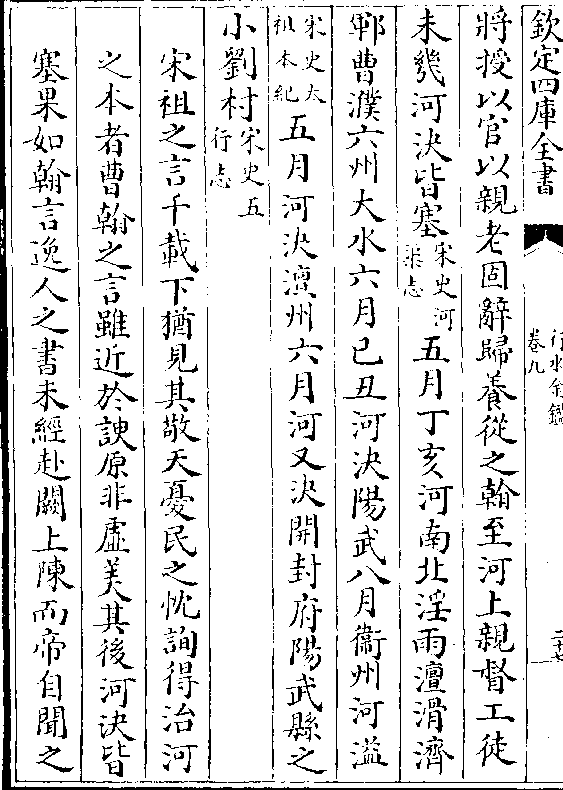 欽定四庫全書
行水金鑑
卷九
二十七
將授以官以親老固辭歸養從之翰至河上親督工徒
未幾河決皆塞宋史河渠志五月丁亥河南北淫雨澶滑濟
鄆曹濮六州大水六月己丑河決陽武八月衞州河溢
宋史太祖本紀五月河決澶州六月河又決開封府陽武縣之
小劉村宋史五行志
宋祖之言千載下猶見其敬天憂民之忱詢得治河
之本者曹翰之言雖近於諛原非虛美其後河決皆
塞果如翰言逸人之書未經赴闕上陳而帝自聞之